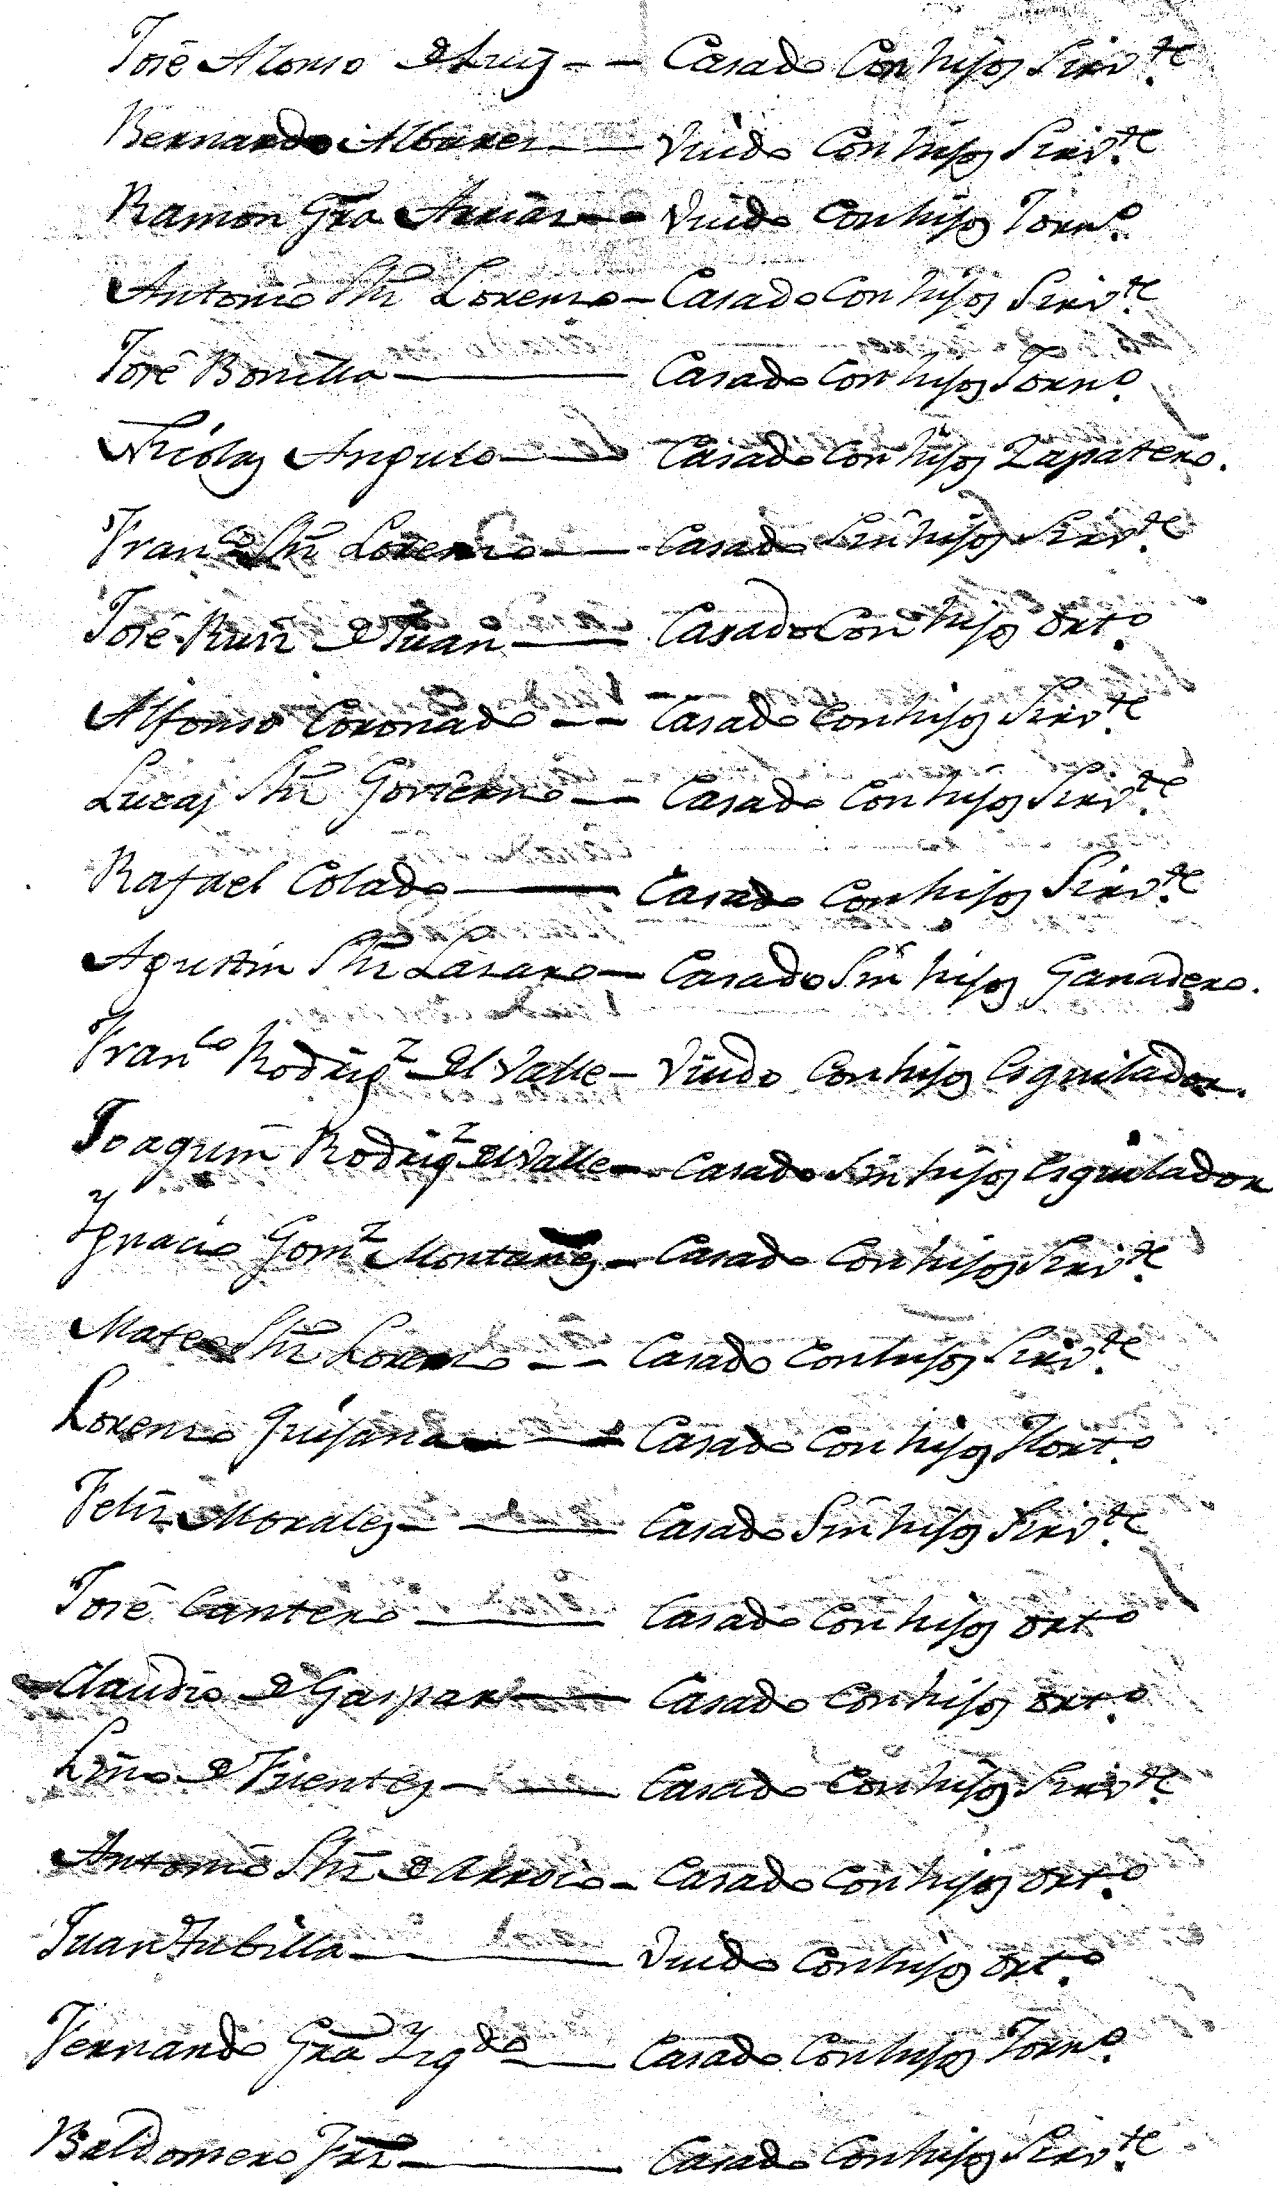 José Alonso de Luis - - Casado Con hijos Sirv.te
Bernardo Albarez - - Viudo Con hijos Sirv.te
Ramon Gra Arias - - Viudo Con hijos Jorn.o
Antonio Shz Lorenzo - Casado Con hijos Sirv.te
José Bonilla - Casado Con hijos Jorn.o
Nicolas Angulo - Casado Con hijos Zapatero.
Fran.co Shz Lorenzo - Casado Sin hijos Sirv.te
José Ruiz de Juan - Casado Con hijos Ort.o
Alfonso Coronado - - Casado Con hijos Sirv.te
Lucas Shz Govierno - - Casado Con hijos Sirv.te
Rafael Colado - Casado Con hijos Sirv.te
Agustin Shz Lazaro - Casado Sin hijos Ganadero.
Fran.co Rodrig.z del Valle - Viudo Con hijos Esquilador.
Joaquin Rodrig.z del Valle - Casado Sin hijos Esquilador
Ygnacio Gom.z Montañes - Casado Con hijos Sirv.te
Mateo Shz Lorenzo - - Casado Con hijos Sirv.te
Lorenzo Quijana - - Casado Con hijos Hort.o
Feliz Morales - - Casado Sin hijos Sirv.te
José Cantero - Casado Con hijos Ort.o
Claudio de Gaspar - Casado Con hijos Ort.o
Lino de Fuentes - - Casado Con hijos Sirv.te
Antonio Shz de Arroio - Casado Con hijos Ort.o
Juan Jubilla - Viudo Con hijos Ort.o
Fernando Gra Yzq.do - Casado Con hijos Jorn.o
Baldomero Frz - Casado Con hijos Sirv.te